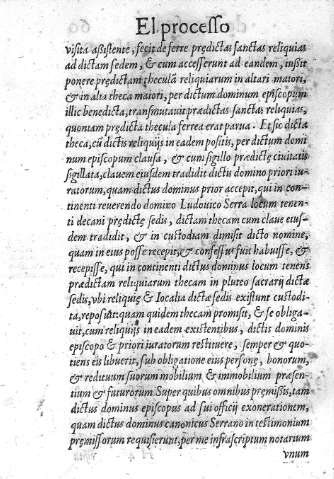 El processo
visita assistente, fecit deferre prędictas sanctas reliquias
ad dictam sedem, & cum accesserunt ad eandem, iussit
ponere prędictam theculā reliquiarum in altari maiori,
& in alta theca maiori, per dictum dominum episcopum
illic benedicta, transmutauit prædictas sanctas reliquias,
quoniam prędicta thecula ferrea erat parua. Et sic dicta
theca, cū dictis reliquijs in eadem positis, per dictum domi
num episcopum clausa, & cum sigillo prædictę ciuitatis
sigillata, clauem eiusdem tradidit dicto domino priori iu-
ratorum, quam dictus dominus prior accepit, qui in con-
tinenti reuerendo domino Ludouico Serra locum tenen
ti decani prędictę sedis, dictam thecam cum claue eius-
dem tradidit, & in custodiam dimisit dicto nomine,
quam in eius posse recepit, & confessus fuit habuisse, &
recepisse, qui in continenti dictus dominus locum tenens
prædictam reliquiarum thecam in pluteo sacrarij dictæ
sedis, vbi reliquię & Iocalia dictæ sedis existunt custodi-
ta, reposuit: quam quidem thecam promisit, & se obliga-
uit, cum reliquijs in eadem existentibus, dictis dominis
episcopo & priori iuratorum restituere, semper & quo-
tiens eis libuerit, sub obligatione eius personę, bonorum,
& redituum suorum mobilium & immobilium præsen-
tium & futurorum. Super quibus omnibus pręmissis, tam
dictus dominus episcopus ad sui officij exonerationem,
quam dictus dominus canonicus Serrano in testimonium
pręmissorum requisierunt, per me infrascriptum notarium
vnum